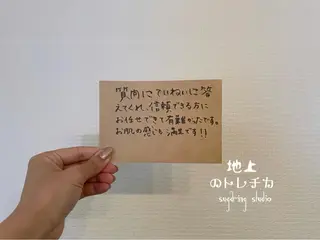 質問にていねいに答
えてくれ、信頼できる方に
お任せできて有難かったです。
お肌の感じも満足です!!
地上
のトレチカ
sugaring studio